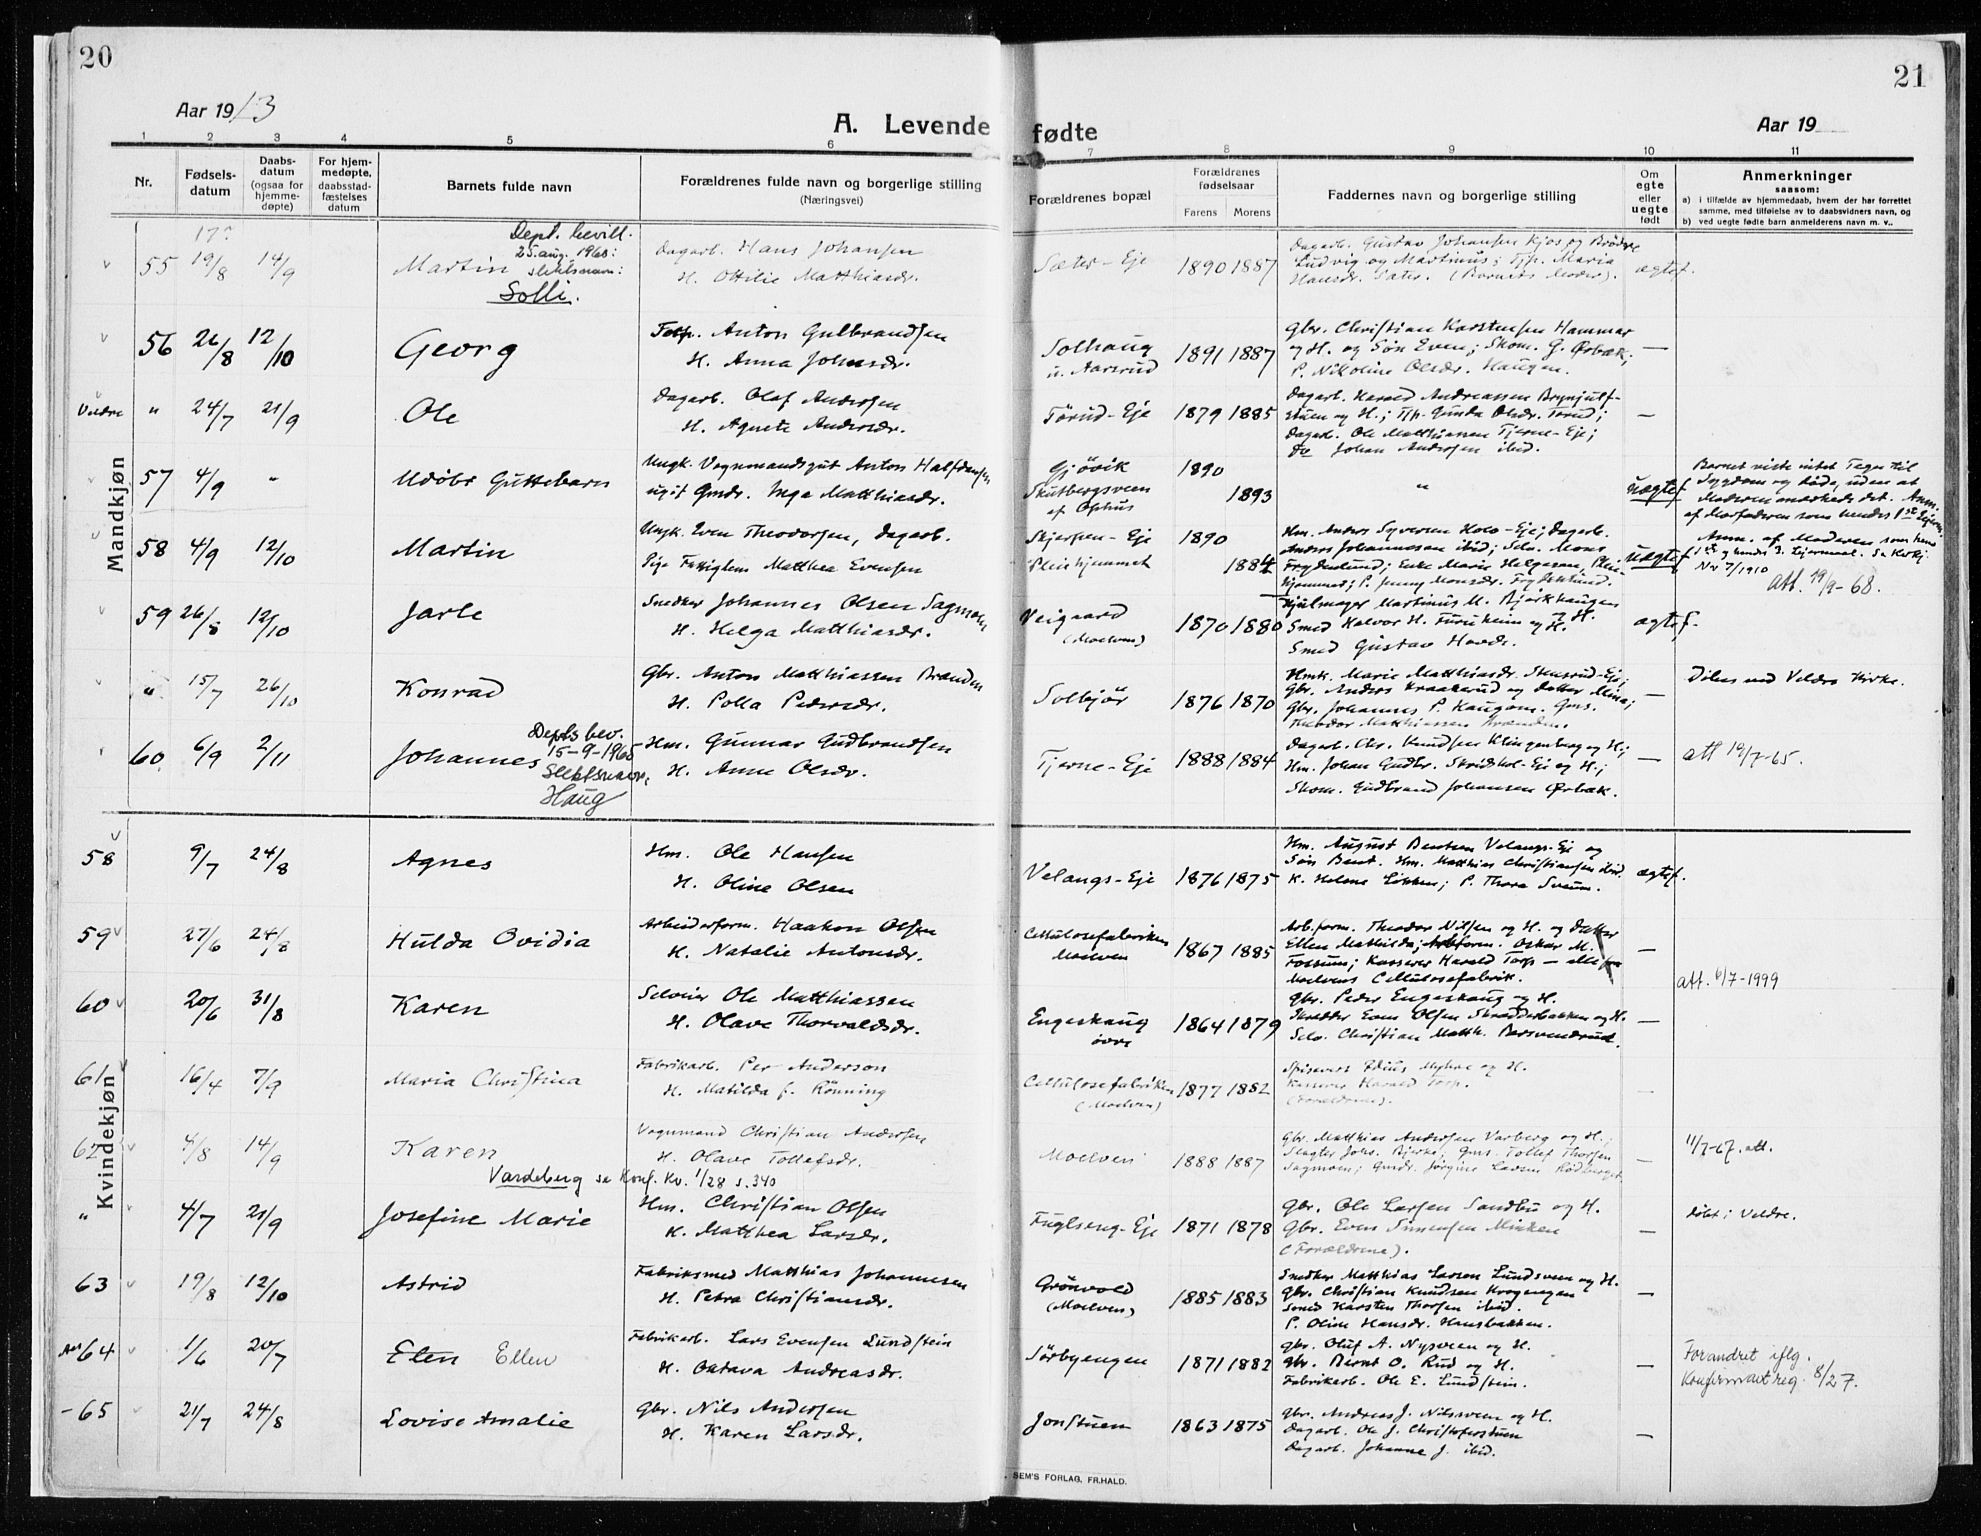 20
21
Aar 1913
A. Levende fødte
Aar 19
1 2 3 4 5 6 7 8 9 10 11
Nr.
Fødsels-
datum
Daabs-
datum
(ogsaa for
hjemme-
døpte)
For hjem-
medøpte,
daabsstad-
fæstelses
datum
Barnets fulde navn
Forældrenes fulde navn og borgerlige stilling
(Næringsvei)
Forældrenes bopæl
Forældrenes
fødselsaar
Farens Morens
Faddernes navn og borgerlige stilling
Om
egte
eller
uegte
født
Anmerkninger
saasom:
a) i tilfælde av hjemmedaab, hvem der har forrettet
samme, med tilføielse av to daabsvidners navn, og
b) ved uegte fødte barn anmelderens navn m. v..
Mandkjøn
55 19/8 14/9 Martin
17?
Dept. bevill.
25. aug. 1968:
slektsnavn:
Solli.
Dagarb. Hans Johansen
H. Ottilie Matthiasdr.
Sæter-Eje 1890 1887
Dagarb. Gustav Johansen Kjos og Brødre
Ludvig og Martinus; Tjp. Maria
Hansdr. Sæter. (Barnets Moder).
ægtef.
56 26/8 12/10 Georg
Anton Gulbrandsen
H. Anna Johnsdr.
Solhaug
u. Aarsrud
1891 1887
Gbr. Christian Karstensen Hammer
og H. og Søn Even; Skom. G. Ørbæk;
P. Nikoline Olsdr. Haugen.
—
Veldre " 24/7 21/9 Ole
Dagarb. Olaf Andersen
H. Agnete Andersdr.
Tørud-Eje 1879 1885
Dagarb. Harald Andreassen Brynjulf-
stuen og H.; Tjp. Gunda Olsdr. Tørud;
Dagarb. Ole Matthiassen Tjerne-Eje;
Do Johan Andersen ibid.
—
57 4/9 " Udøbt Guttebarn
Ungk. Vognmandsgut Anton Halfdansen
ugift Gmdr. Inga Matthiasdr.
Gjøvik 1890
Skutbergsveen
af Ophus
1893
"
uægtef
Barnet viste intet Tegn til
Sygdom og døde, uden at
Moderen mærkede det. Anm.
af Morfaderen som hendes 1ste Lejerm.
58 4/9 12/10 Martin
Ungk. Even Theodorsen, Dagarb.
Pige Fattiglem Matthea Evensen
Skjerpen-Eje 1890
Pleiehjemmet 1884
Hm. Anders Syversen Holo-Eje; Dagarb.
Anders Johannessen ibid; Selv. Mons
Frydenlund; Enke Marie Helgesen, Pleie-
hjemmet; P. Jenny Monsdr. Frydenlund.
uægtef
Anm. af Moderen som hans
1ste og hendes 3. Lejermaal. Se Kirkj.
Nr 7/1910
att. 19/9-68.
59 26/8 12/10 Jarle
Snedker Johannes Olsen Sagmoen
H. Helga Matthiasdr.
Veigaard
(Moelven)
1870 1880
Hjulmager Martinus M. Bjørkhaugen
Smed Halvor H. Furuheim og H.
Smed Gustav Hovde.
ægtef.
" 15/7 26/10 Konrad
Gbr. Anton Matthiassen Brænden
H. Polla Pedersdr.
Solbjør 1876 1870
Hmk. Marie Matthiasdr. Skusrud-Eje;
Gbr. Anders Kraakerud og Datter Mina;
Gbr. Johannes P. Haugom. Gms.
Theodor Matthiassen Brænden.
—
Døbt ved Veldre Kirke.
60. 6/9 2/11 Johannes
Depts bev.
15-9-1965
Slektsnavn:
Haug
Hm. Gunnar Gudbrandsen
H. Anne Olsdr.
Tjerne-Eje 1888 1884
Dagarb. Chr. Knudsen Klingenberg og H.;
Hm. Johan Gudbr. Skridshol-Eje og H.;
Skom. Gudbrand Johansen Ørbæk.
—
att 19/7-65.
Kvindekjøn
58 9/7 24/8 Agnes
Hm. Ole Hansen
H. Oline Olsen
Velangs-Eje 1876 1875
Hm. August Bentsen Velangs-Eje og
Søn Bent. Hm. Matthias Christiansen ibid.
K. Helene Løkken; P. Thora Sveum.
ægtef.
59 27/6 24/8 Hulda Ovidia
Arbeiderform. Haakon Olsen
H. Natalie Antonsdr.
Cellulosefabriken
Moelven
1867 1885
Arb.form. Theodor Nilsen og H. og Datter
Ellen Mathilda; Arb.form. Oskar M.
Fossum; Kasserer Harald Torp — alle fra
Moelvens Cellulosefabrik.
—
60 20/6 31/8 Karen
Selveier Ole Matthiassen
H. Olave Thorvaldsdr.
Engeskaug
øvre
1864 1879
Gbr. Peder Engeskaug og H.
Skrædder Even Olsen Skrædderbakken og H.
Selv. Christian Matth. Bersvendrud.
—
att. 6/7-1999
61 16/4 7/9 Maria Christina
Fabrikarb. Per Anderson
H. Matilda f. Rönning
Cellulosefabriken
(Moelven)
1877 1882
Spisevert Edius Myhre og H.
Kasserer Harald Torp.
(Forældrene).
—
62 4/8 14/9 Karen
Vardeberg se Konf. Kv. 1/28 s. 340
Vognmand Christian Andersen
H. Olave Tollefsdr.
Moelven 1888 1887
Gbr. Matthias Andersen Varberg og H.;
Slagter Johs. Bjerke; Gms. Tollef Thorsen
Sagmoen; Gmdr. Jørgine Larsen Rødberget
—
11/7-67. att.
" 4/7 21/9 Josefine Marie
Hm. Christian Olsen
H. Matthea Larsdr.
Fuglseng-Eje 1871 1878
Gbr. Ole Larsen Sandbu og H.
Gbr. Even Simensen Minken
(Forældrene).
—
døbt i Veldre.
63 19/8 12/10 Astrid
Fabriksmed Matthias Johannesen
H. Petra Christiansdr.
Grönvold
(Moelven)
1885 1883
Snedker Matthias Larsen Lundsveen og H.
Gbr. Christian Knudsen Krogengen
Smed Karsten Thorsen ibid.
P. Oline Hansdr. Hansbakken.
—
64 1/6 20/7 Elen Ellen
Fabrikarb. Lars Evensen Lundstein
H. Oktava Andreasdr.
Sørbyengen 1871 1882
Gbr. Oluf A. Nysveen og H.
Gbr. Bernt O. Rud og H.
Fabrikarb. Ole E. Lundstein.
—
Forandret iflg.
Konfirmantreg. 8/27.
-65 21/7 24/8 Lovise Amalie
Gbr. Nils Andersen
H. Karen Larsdr.
Jonstuen 1863 1875
Gbr. Andreas J. Nilsveen og H.
Dagarb. Ole J. Christoferstuen
Dagarb. Johanne J. ibid.
—
SEM'S FORLAG, FR.HALD.